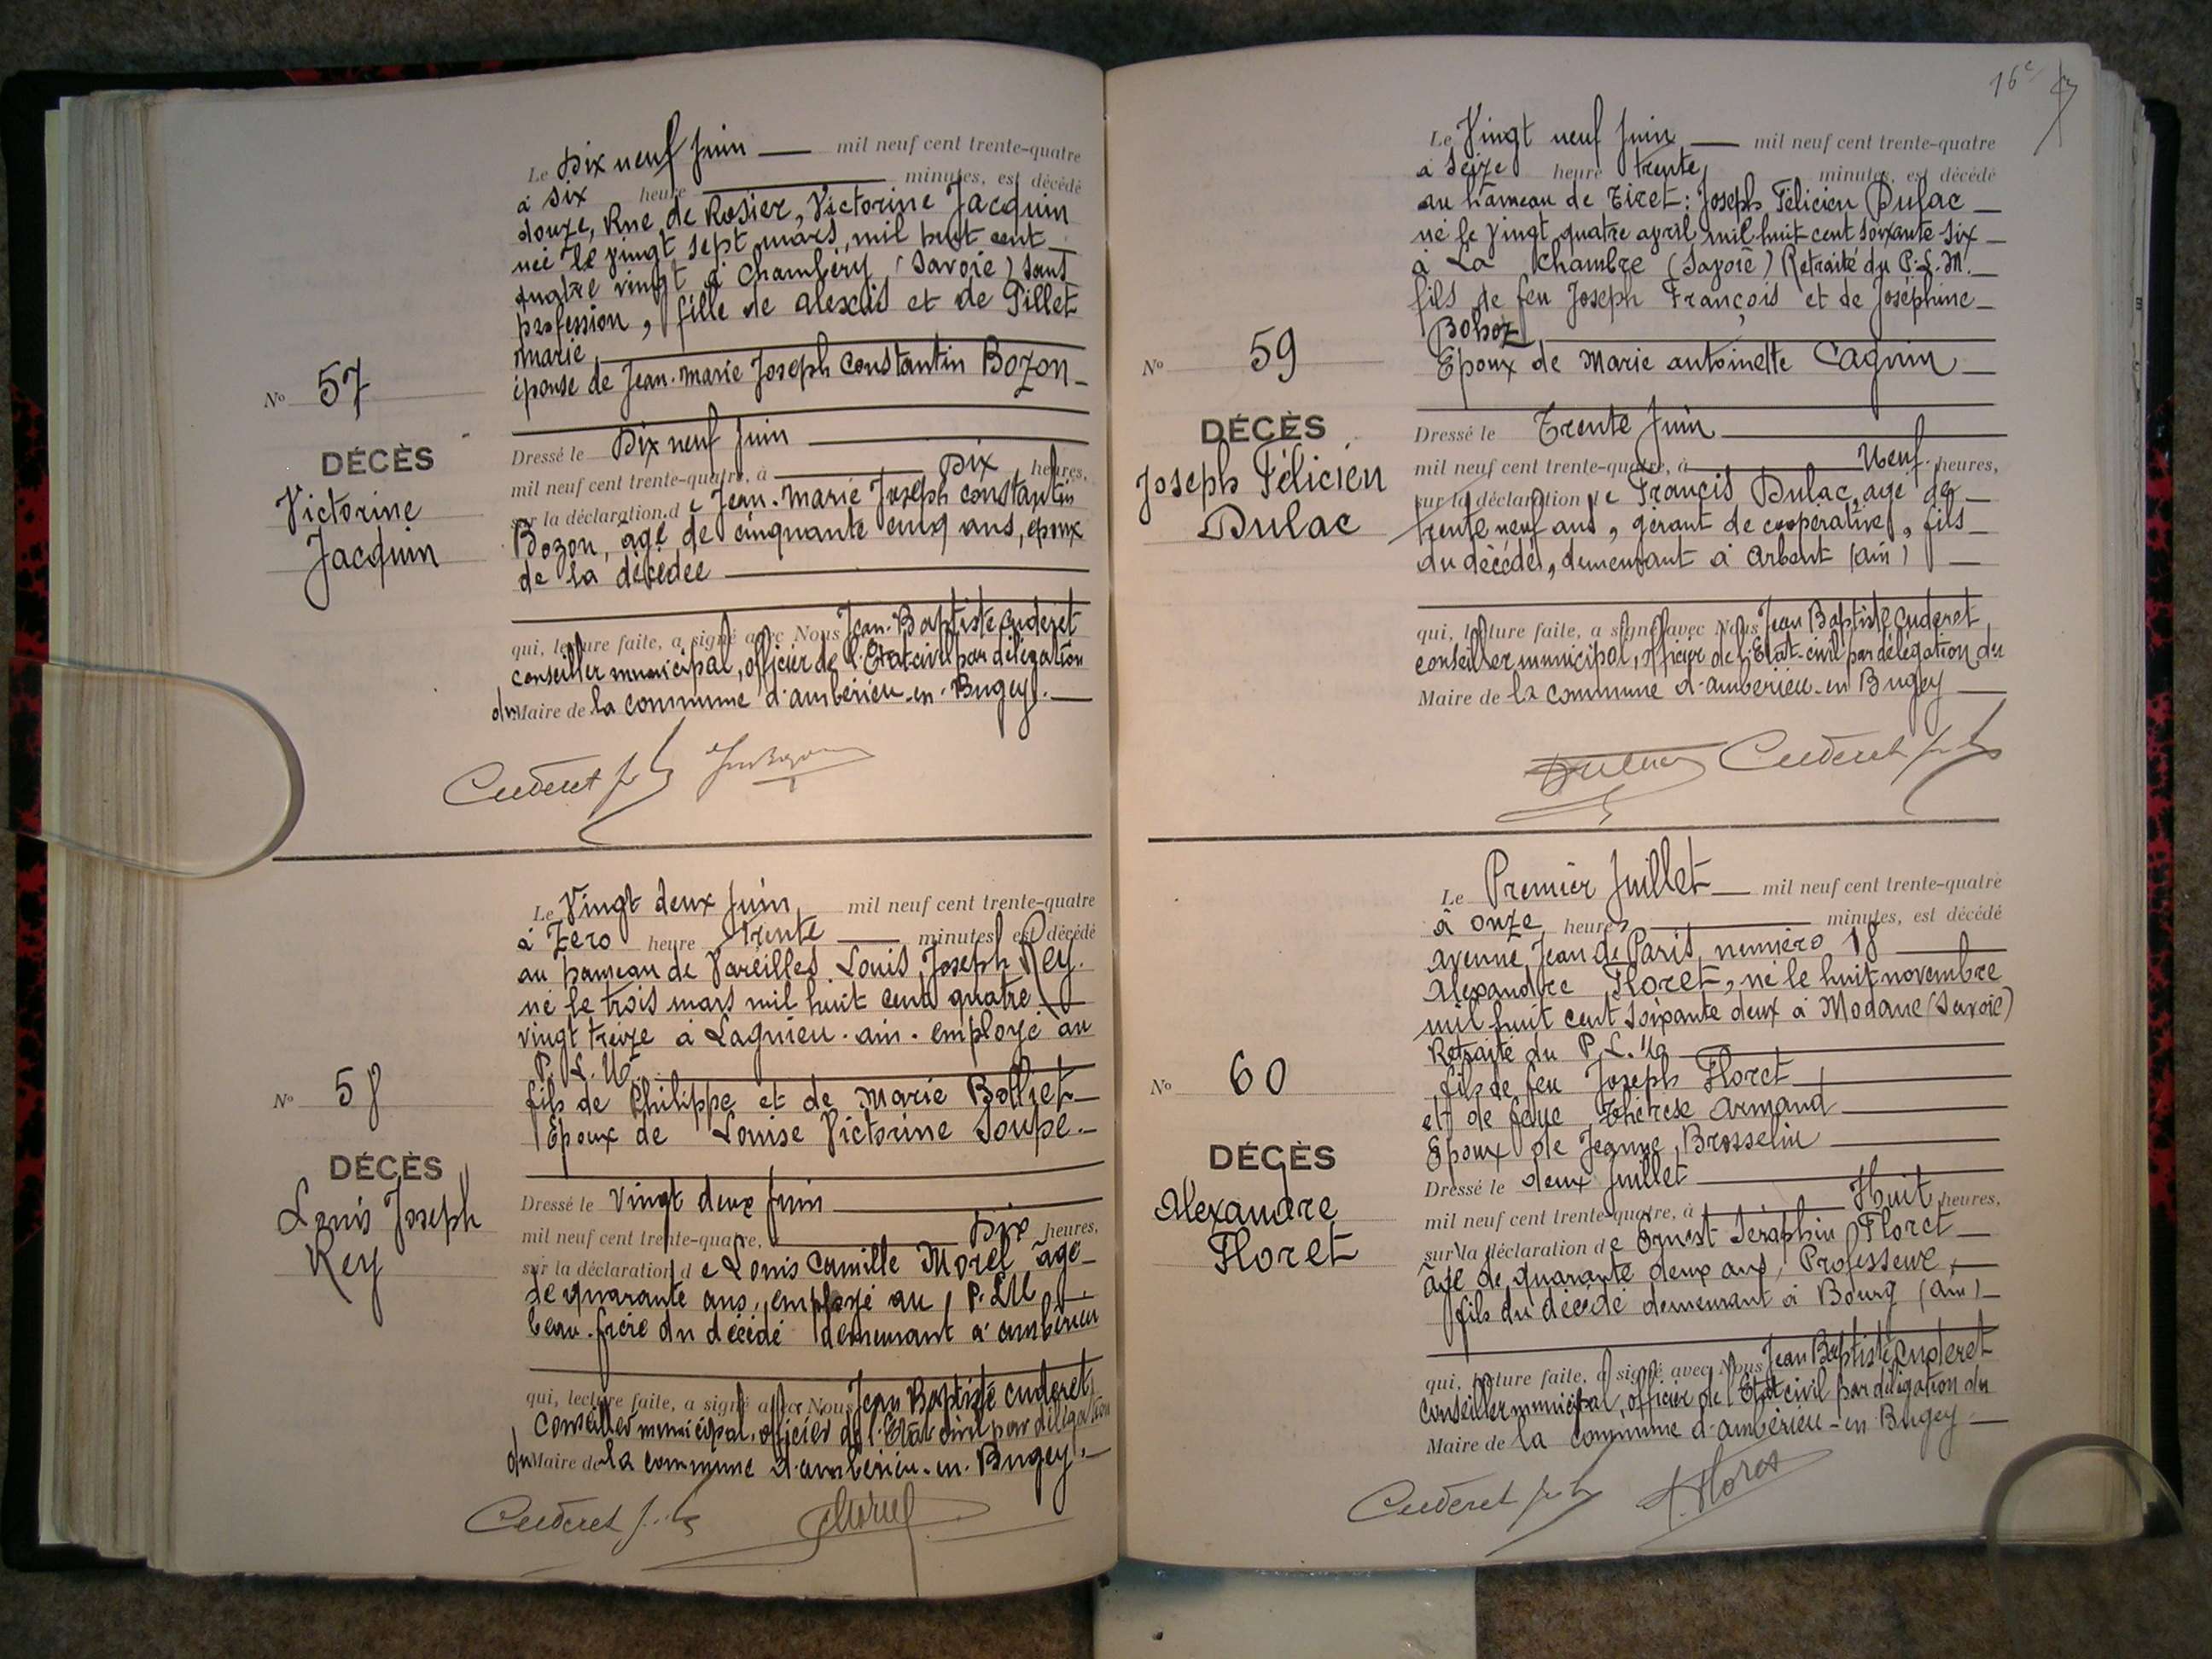 Le Dix neuf Juin mil neuf cent trente-quatre
à Six heure minutes, est décédé
douze, Rue de Rosier, Victorine Jacquin
née le vingt sept mars, mil huit cent
quatre vingt à Chambéry (Savoie) sans
profession, fille de Alexis et de Pillet
marie
épouse de Jean-Marie Joseph Constantin Bozon
No 57
DÉCÈS
Victorine
Jacquin
Dressé le Dix neuf Juin
mil neuf cent trente-quatre, à Dix heures,
sur la déclaration de Jean-Marie Joseph Constantin
Bozon, âgé de cinquante cinq ans, époux
de la décédée
qui, lecture faite, a signé avec Nous Jean-Baptiste Cuderet
conseiller municipal, officier de l'Etat-civil par délégation
du Maire de la commune d'ambérieu-en-Bugey.
Cuderet
Le Vingt deux Juin mil neuf cent trente-quatre
à Zéro heure Trente minutes, est décédé
au hameau de Vareilles Louis Joseph Rey.
né le trois mars mil huit cent quatre
vingt treize à Lagnieu-ain-employé au
P.L.M.
fils de Philippe et de Marie Bolliet
Epoux de Louise Victorine Soupe.
No 58
DÉCÈS
Louis Joseph
Rey
Dressé le Vingt deux Juin
mil neuf cent trente-quatre, Dix heures,
sur la déclaration de Louis Camille Morel âgé
de quarante ans, employé au P.L.M
beau-frère du décédé demeurant à ambérieu
qui, lecture faite, a signé avec Nous Jean Baptiste Cuderet
Conseiller municipal, officier de l'Etat civil par délégation
du Maire de la commune d'ambérieu-en-Bugey.
Cuderet Morel
16e
Le Vingt neuf Juin mil neuf cent trente-quatre
à Seize heure trente minutes, est décédé
au hameau de Tiret: Joseph Félicien Dulac
né le vingt quatre avril mil huit cent soixante six
à La Chambre (Savoie) Retraité du P.L.M.
fils de feu Joseph François et de Joséphine
Bohoz
Epoux de Marie antoinette Cagnin
No 59
DÉCÈS
Joseph Félicien
Dulac
Dressé le Trente Juin
mil neuf cent trente-quatre, à Neuf heures,
sur la déclaration de Francis Dulac, agé de
trente neuf ans, gérant de coopérative, fils
du décédé, demeurant à Arbent (ain)
qui, lecture faite, a signé avec Nous Jean Baptiste Cuderet
conseiller municipal, officier de l'Etat-civil par délégation du
Maire de la commune d'ambérieu-en Bugey
Dulac Cuderet
Le Premier Juillet mil neuf cent trente-quatre
à onze heures minutes, est décédé
avenue Jean de Paris, numéro 18
Alexandre Floret, né le huit novembre
mil huit cent soixante deux à Modane (Savoie)
Retraité du P.L.M.
fils de feu Joseph Floret
et de feue Thérèse Armand
Epoux de Jeanne Brosselin
No 60
DÉCÈS
Alexandre
Floret
Dressé le deux Juillet
mil neuf cent trente-quatre, à Huit heures,
sur la déclaration de Ernest Séraphin Floret
âgé de quarante deux ans, Professeur,
fils du décédé demeurant à Bourg (ain)
qui, lecture faite, a signé avec Nous Jean Baptiste Cuderet
conseiller municipal, officier de l'Etat civil par délégation du
Maire de la commune d'ambérieu-en Bugey
Cuderet Floret